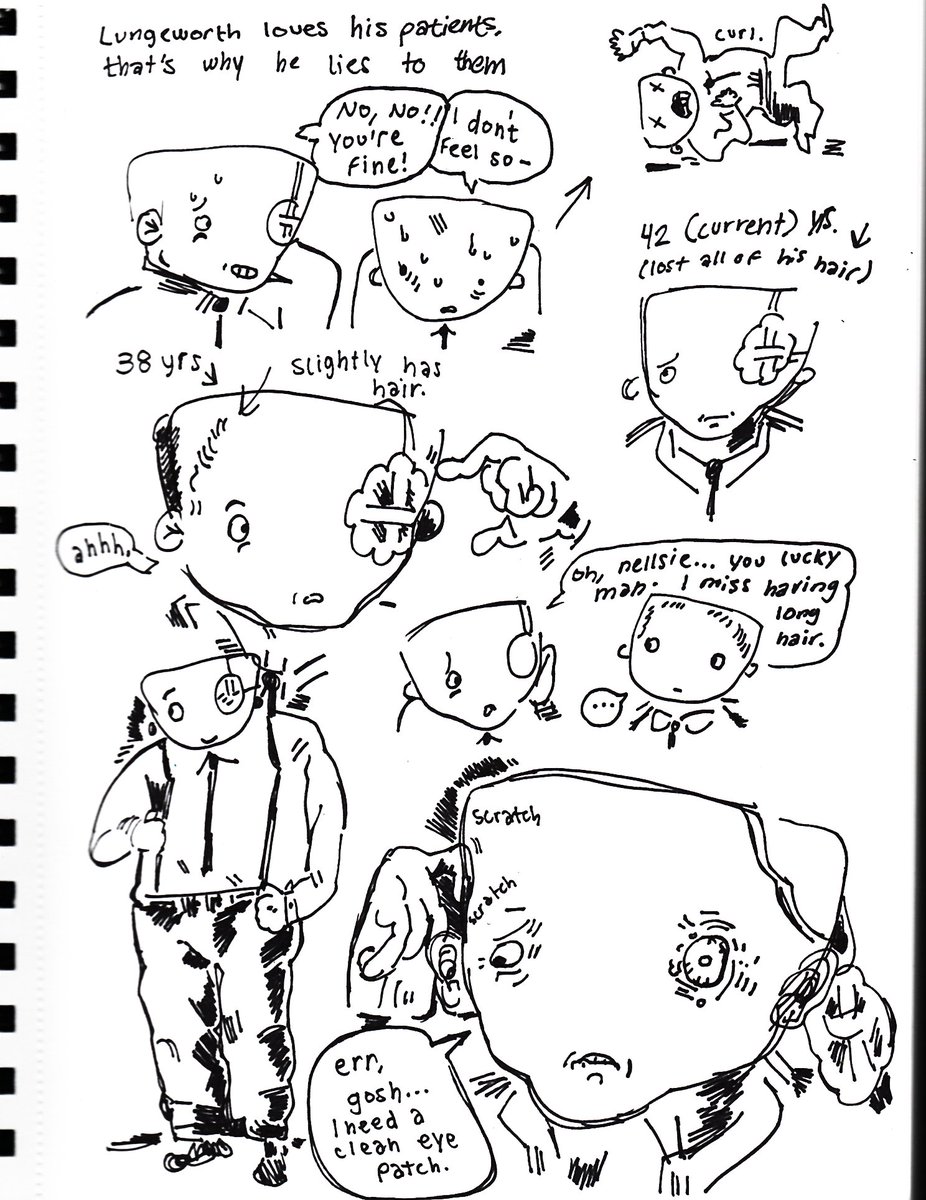 Lungeworth loves his patients.
that's why he lies to them
curl.
No, No!!
You're
fine!
I don't
feel so-
42 (current) yrs.
(lost all of his hair)
38 yrs
slightly has
hair.
ahhh,
oh, nellsie... you lucky
man. I miss having
long
hair.
...
scratch
scratch
err,
gosh...
I need a
clean eye
patch.